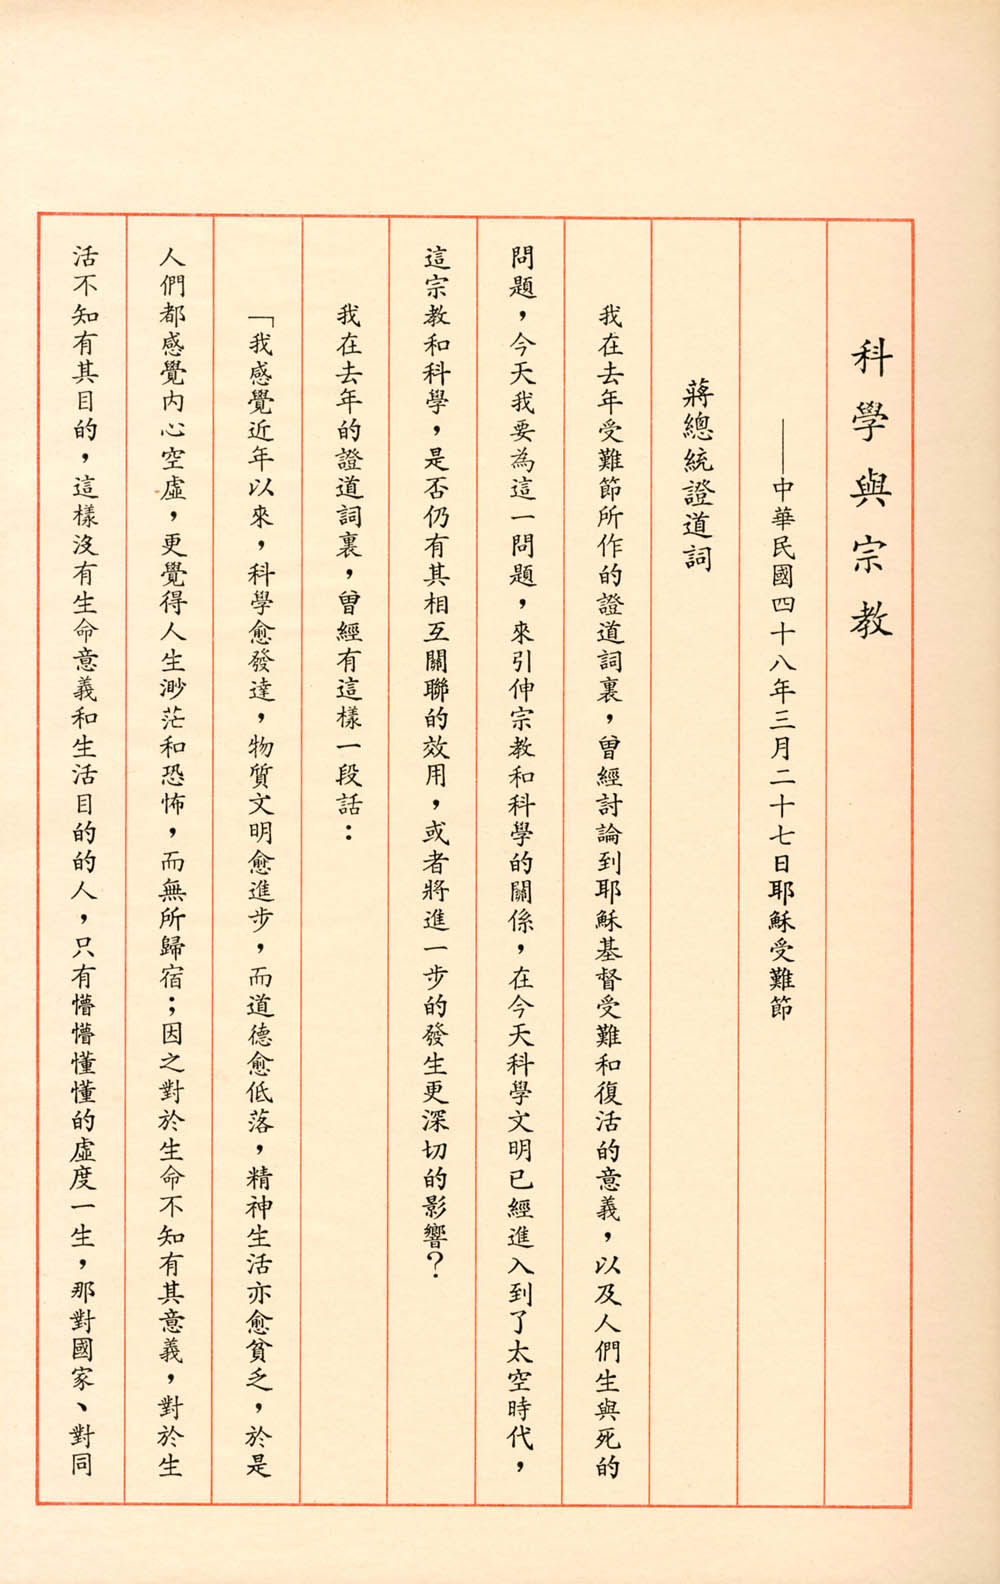 科學與宗教
——中華民國四十八年三月二十七日耶穌受難節
蔣總統證道詞
我在去年受難節所作的證道詞裏，曾經討論到耶穌基督受難和復活的意義，以及人們生與死的
問題，今天我要為這一問題，來引伸宗教和科學的關係，在今天科學文明已經進入到了太空時代，
這宗教和科學，是否仍有其相互關聯的效用，或者將進一步的發生更深切的影響？
我在去年的證道詞裏，曾經有這樣一段話：
「我感覺近年以來，科學愈發達，物質文明愈進步，而道德愈低落，精神生活亦愈貧乏，於是
人們都感覺內心空虛，更覺得人生渺茫和恐怖，而無所歸宿；因之對於生命不知有其意義，對於生
活不知有其目的，這樣沒有生命意義和生活目的的人，只有懵懵懂懂的虛度一生，那對國家、對同